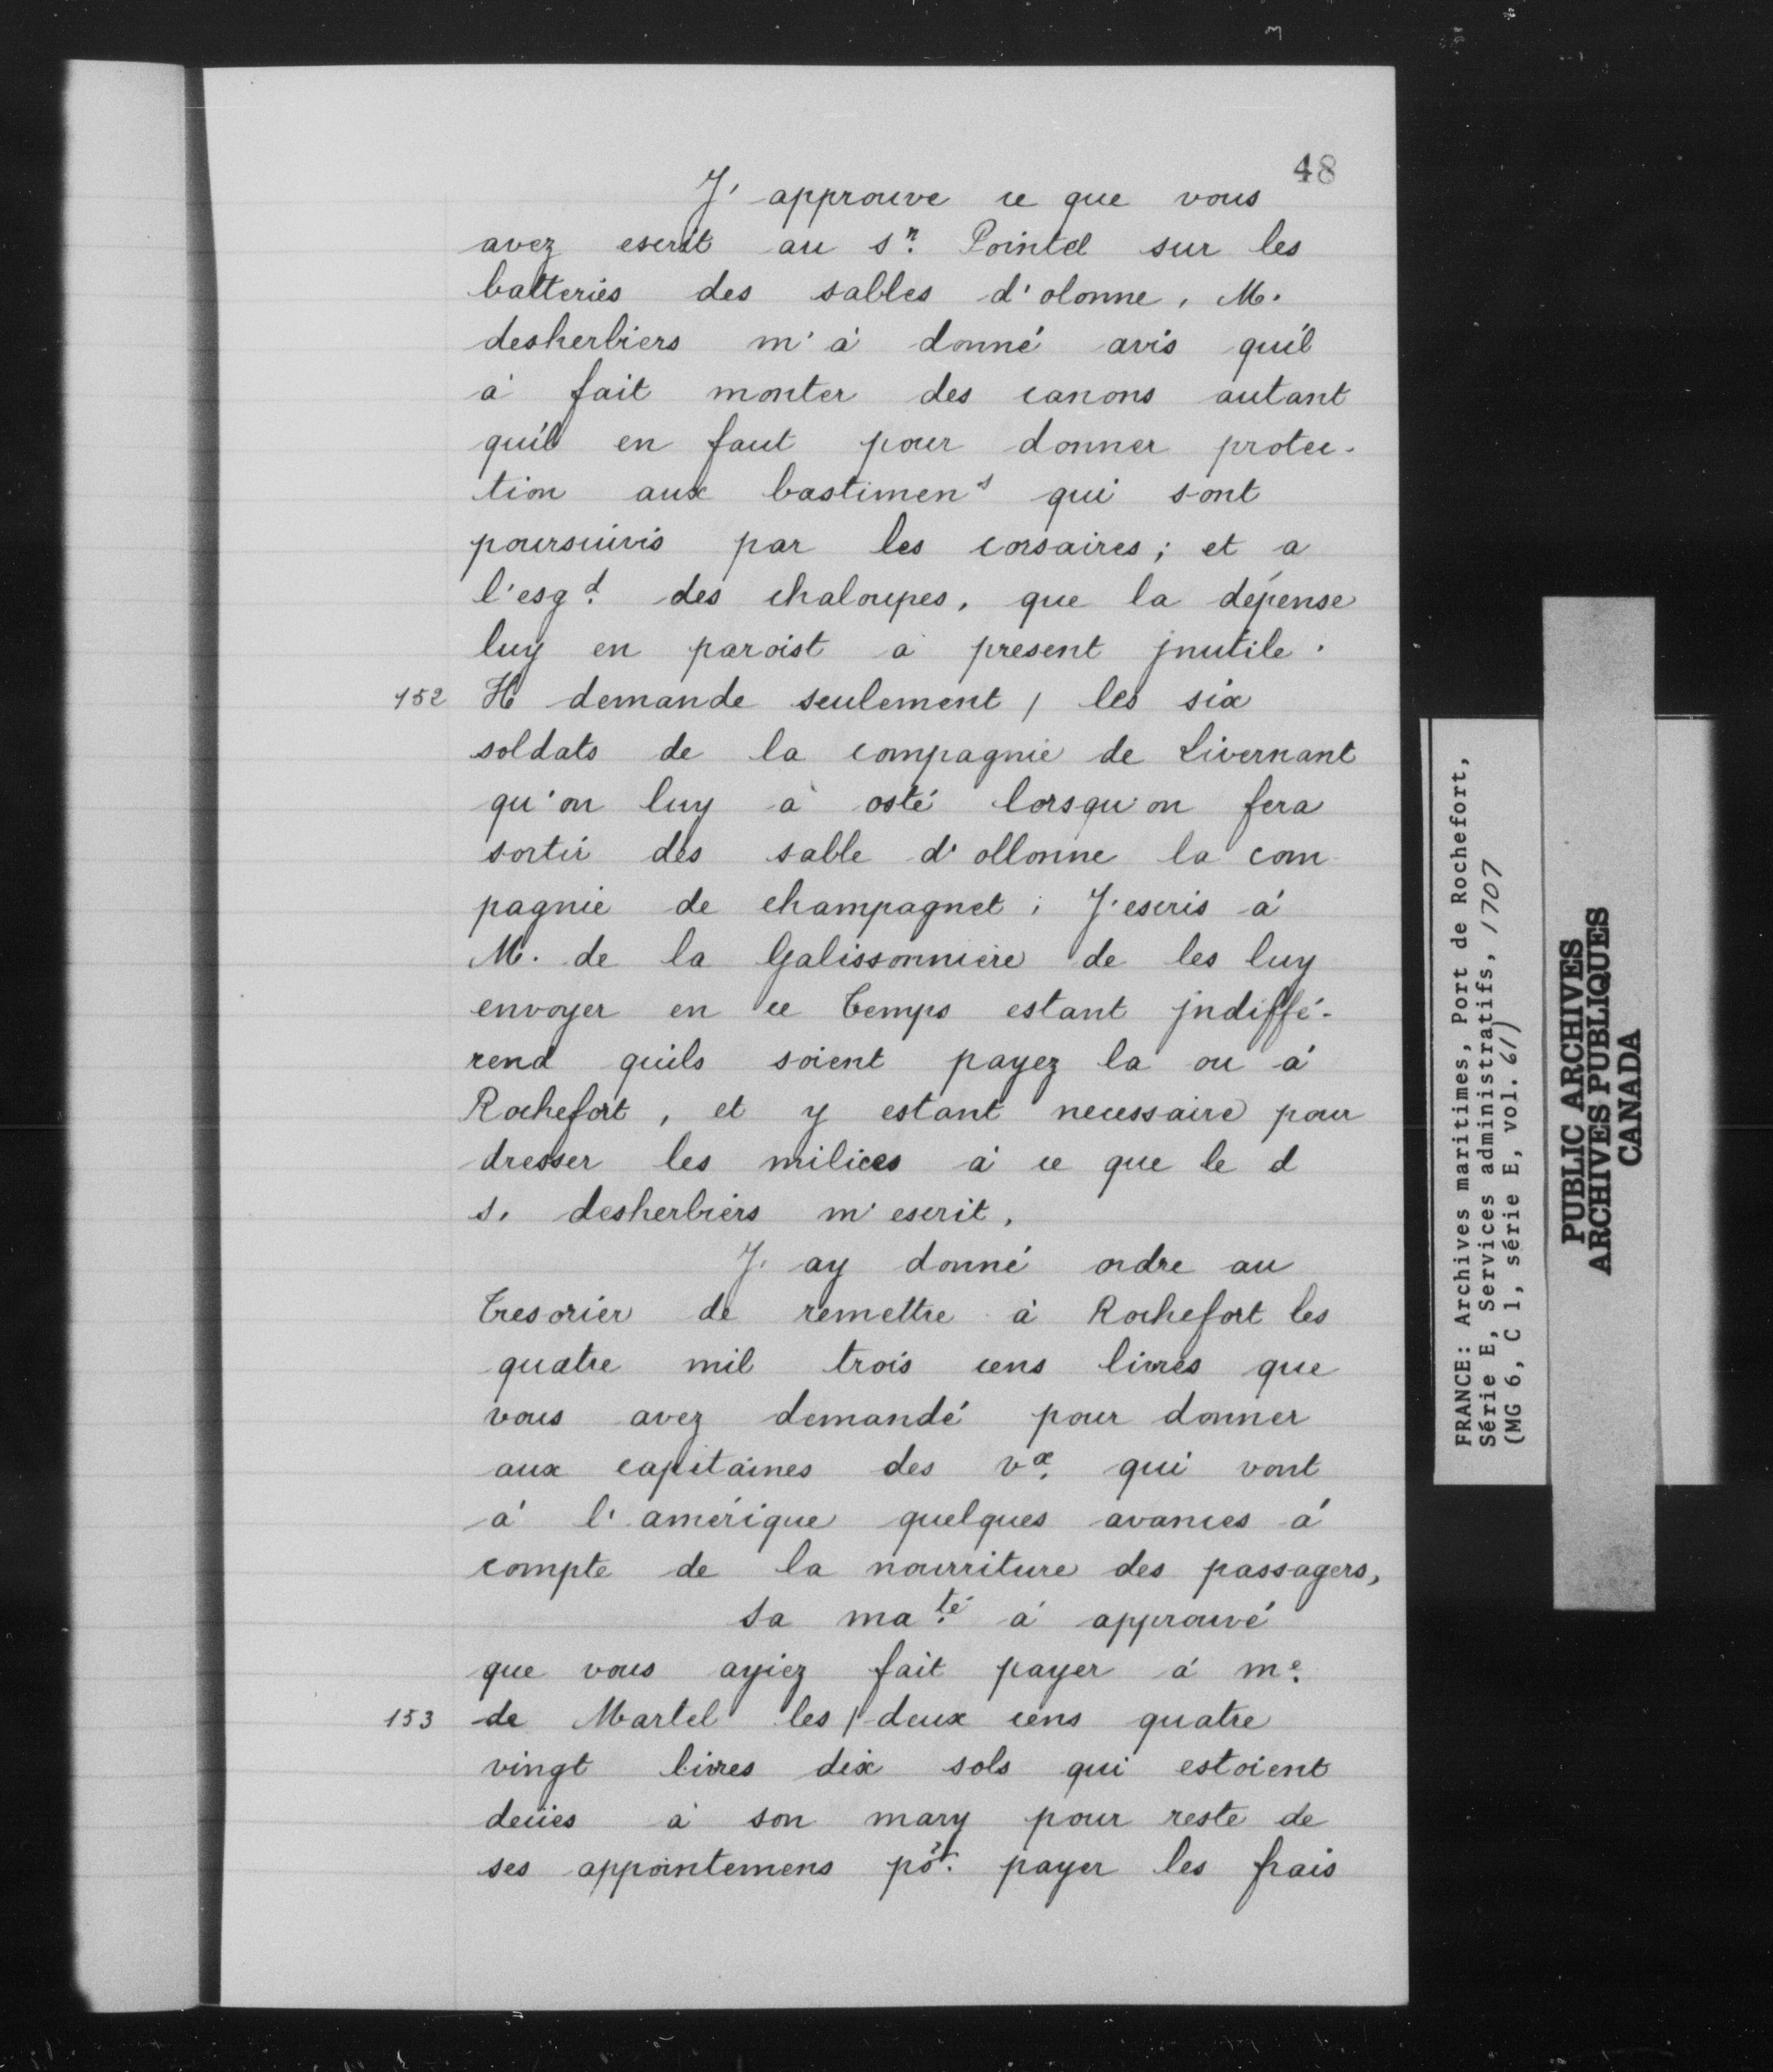 48
J'approuve ce que vous
avez escrit au sr. Pointel sur les
batteries des sables d'olonne, M.
desherbiers m'à donné avis quil
à fait monter des canons autant
quil en faut pour donner protec-
tion aux bastimens qui sont
poursuivis par les corsaires; et a
l'esgd. des chaloupes, que la dépense
luy en paroist a present jnutile.
152 Il demande seulement / les six
soldats de la compagnie de Livernant
qu'on luy à osté lorsqu'on fera
sortir des sable d'ollonne la com
pagnie de champagnet; J'escris à
M. de la Galissonniere de les luy
envoyer en ce temps estant jndiffé-
rend quils soient payez la ou à
Rochefort, et y estant necessaire pour
dresser les milices à ce que le d
s. desherbiers m'escrit,
J'ay donné ordre au
tresorier de remettre à Rochefort les
quatre mil trois cens livres que
vous avez demandé pour donner
aux capitaines des vx. qui vont
à l'amérique quelques avances à
compte de la nourriture des passagers,
sa maté. à approuvé
que vous ayiez fait payer à me.
153 de Martel les / deux cens quatre
vingt livres dix sols qui estoient
deües à son mary pour reste de
ses appointemens por. payer les frais
FRANCE: Archives maritimes, Port de Rochefort,
Série E, Services administratifs, 1707
(MG 6, C 1, série E, vol. 61)
PUBLIC ARCHIVES
ARCHIVES PUBLIQUES
CANADA